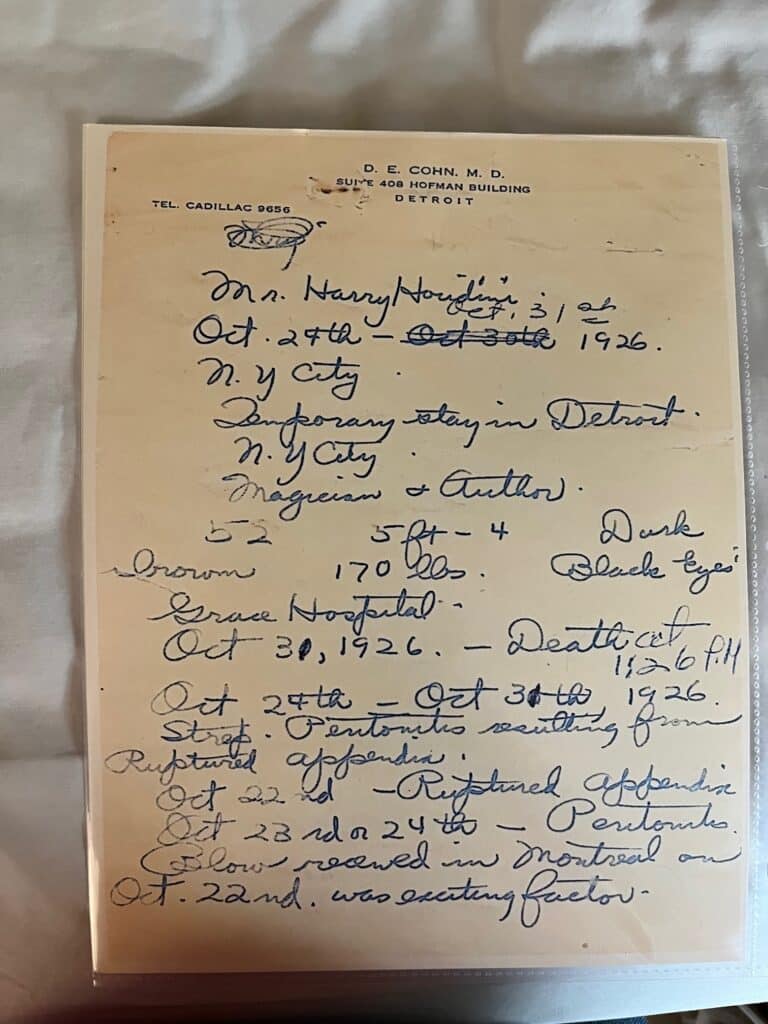 D. E. COHN, M. D.
SUITE 408 HOFMAN BUILDING
DETROIT
TEL. CADILLAC 9656
Mr. Harry Houdini
Oct. 31st
Oct. 24th - Oct 30th 1926.
N. Y City
Temporary stay in Detroit.
N. Y City
Magician & Author.
52 5 ft - 4 Dark
brown 170 lbs. Black Eyes
Grace Hospital
Oct 31, 1926. - Death at
1:26 P.M
Oct 24th - Oct 31th, 1926.
Strep. Peritonitis resulting from
Ruptured appendix.
Oct 22nd - Ruptured appendix
Oct 23rd or 24th - Peritonitis.
Blow received in Montreal on
Oct. 22nd. was exciting factor.